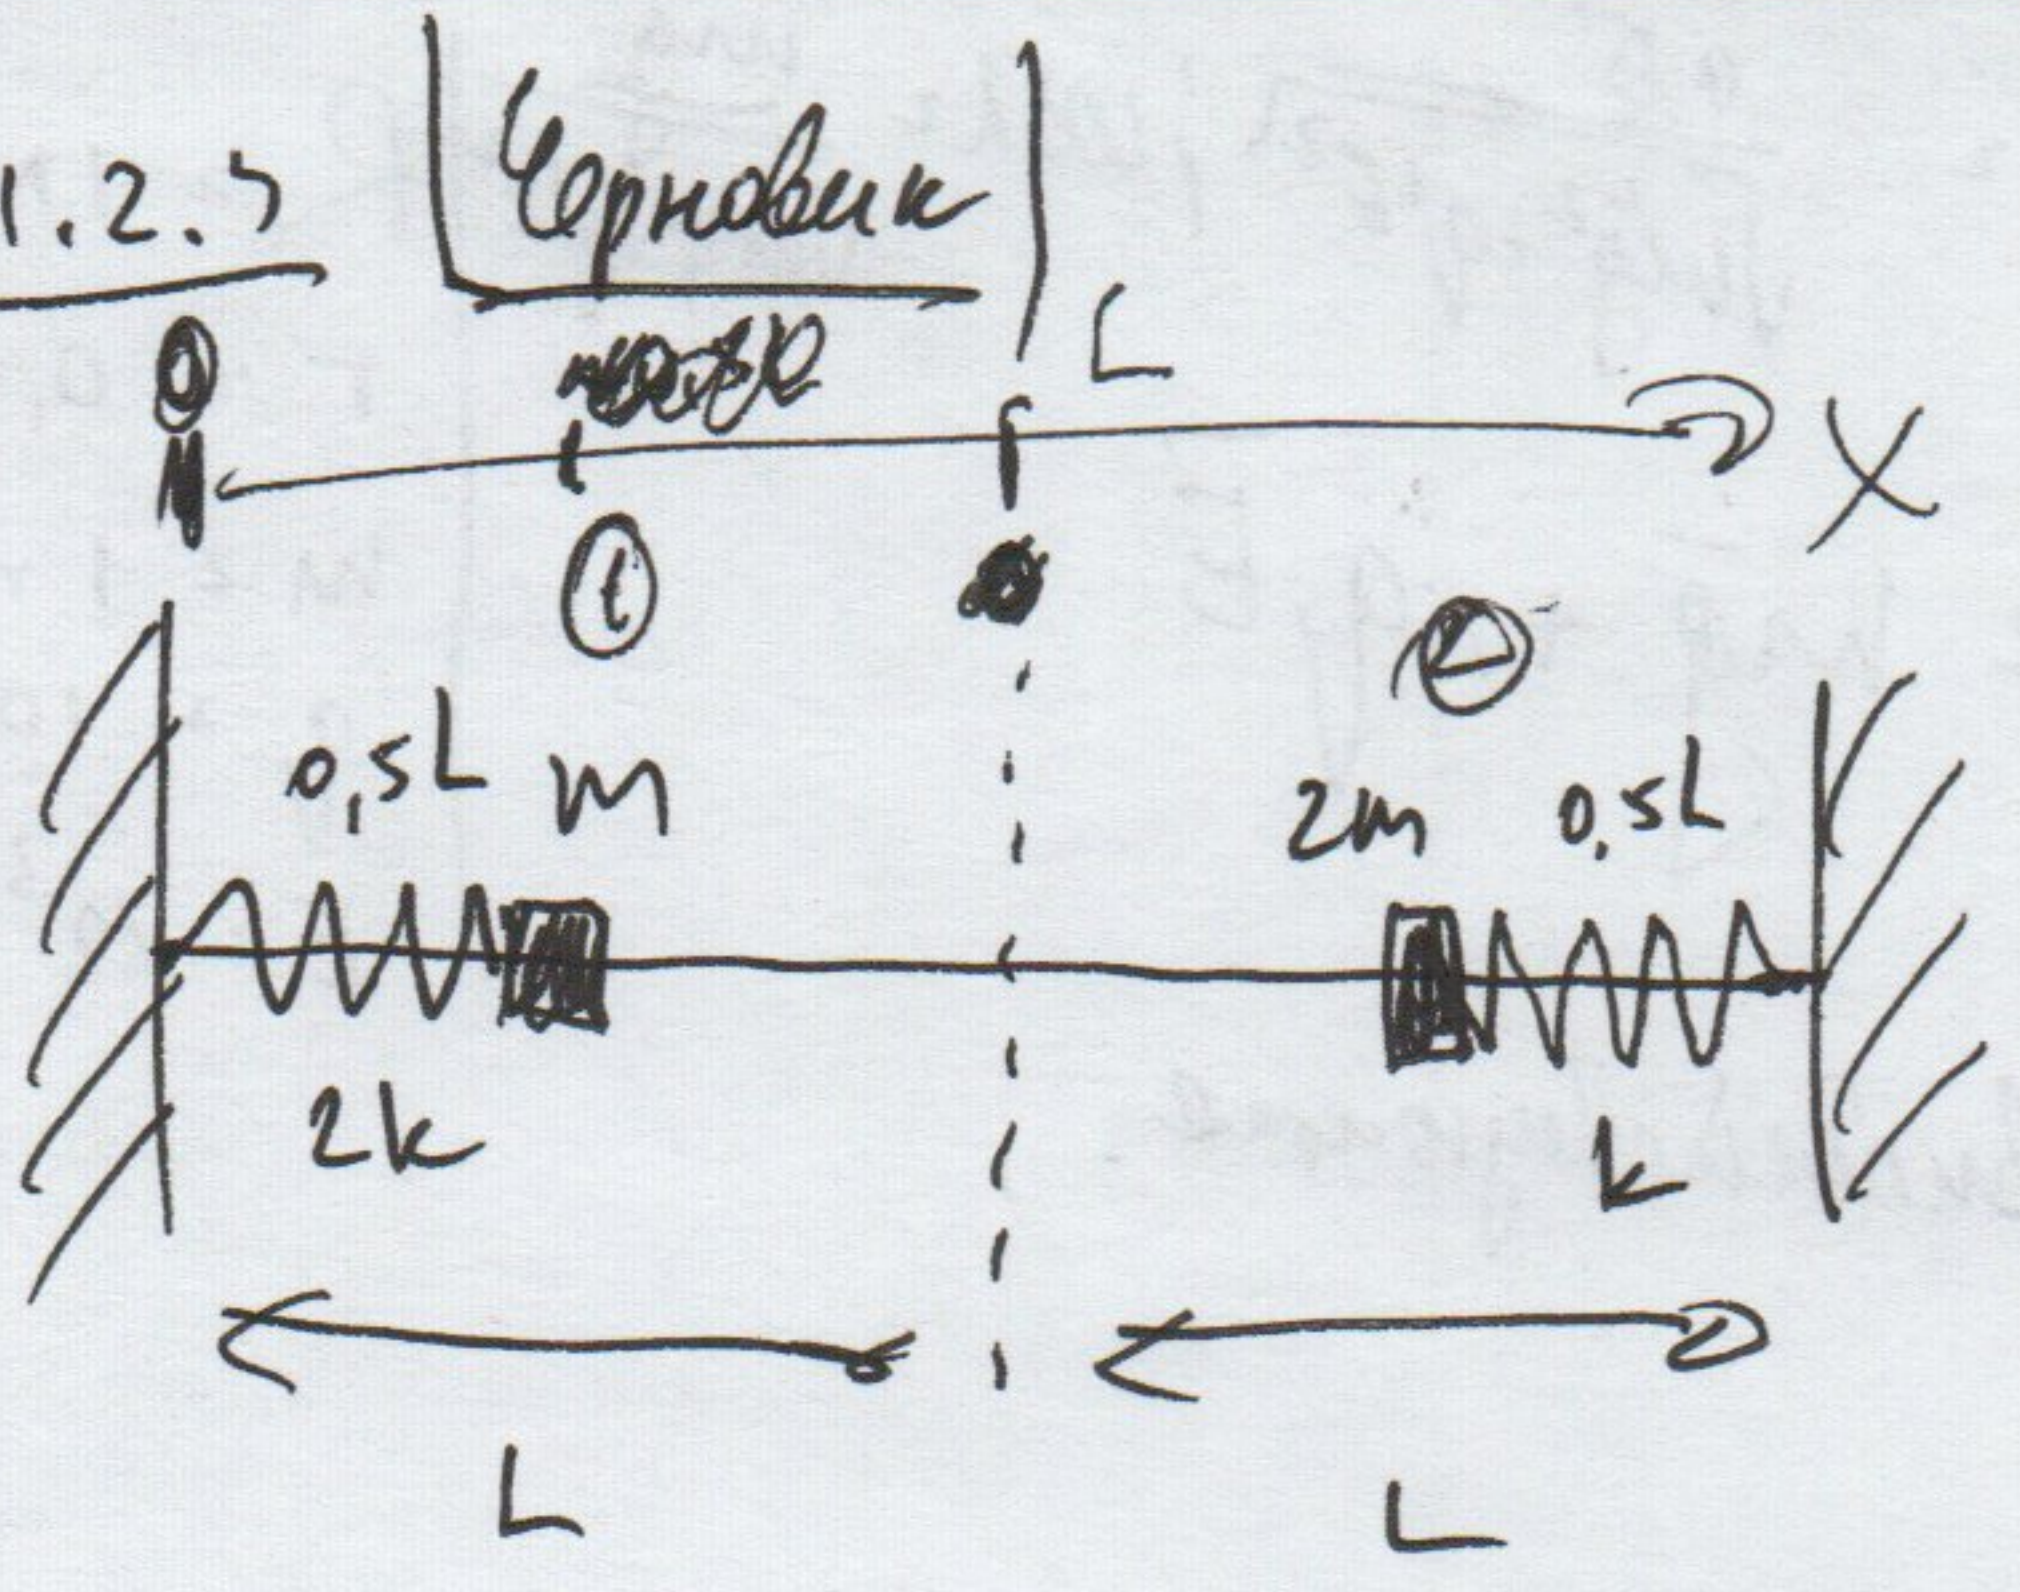 Черновик
0 L
X
1
0,5L m 2m 0,5L
2k k
L L